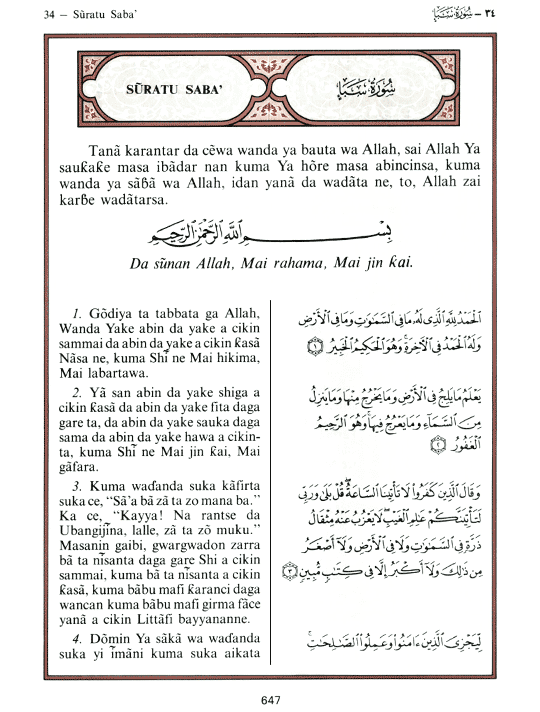 34 – Sũratu Saba’
٣٤ - سُورَةُ سَبَإٍ
SŨRATU SABA’
سُورَةُ سَبَإٍ
Tanã karantar da cẽwa wanda ya bauta wa Allah, sai Allah Ya
sauƙaƙe masa ibãdar nan kuma Ya hõre masa abincinsa, kuma
wanda ya sãɓã wa Allah, idan yanã da wadãta ne, to, Allah zai
karɓe wadãtarsa.
بِسْمِ اللَّهِ الرَّحْمَٰنِ الرَّحِيمِ
Da sũnan Allah, Mai rahama, Mai jin ƙai.
1. Gõdiya ta tabbata ga Allah,
Wanda Yake abin da yake a cikin
sammai da abin da yake a cikin ƙasã
Nãsa ne, kuma Shĩ ne Mai hikima,
Mai labartawa.
2. Yã san abin da yake shiga a
cikin ƙasã da abin da yake fita daga
gare ta, da abin da yake sauka daga
sama da abin da yake hawa a cikin-
ta, kuma Shĩ ne Mai jin ƙai, Mai
gãfara.
3. Kuma waɗanda suka kãfirta
suka ce, “Sã’a bã zã ta zo mana ba.”
Ka ce, “Kayya! Na rantse da
Ubangijĩna, lalle, zã ta zõ muku.”
Masanin gaibi, gwargwadon zarra
bã ta nĩsanta daga gare Shi a cikin
sammai, kuma bã ta nĩsanta a cikin
ƙasã, kuma bãbu mafi ƙaranci daga
wancan kuma bãbu mafi girma fãce
yanã a cikin Littãfi bayyananne.
4. Dõmin Ya sãkã wa waɗanda
suka yi ĩmãni kuma suka aikata
الْحَمْدُ لِلَّهِ الَّذِى لَهُ مَا فِى السَّمَٰوَٰتِ وَمَا فِى الْأَرْضِ
وَلَهُ الْحَمْدُ فِى الْآخِرَةِ وَهُوَ الْحَكِيمُ الْخَبِيرُ ١
يَعْلَمُ مَا يَلِجُ فِى الْأَرْضِ وَمَا يَخْرُجُ مِنْهَا وَمَا يَنزِلُ
مِنَ السَّمَاءِ وَمَا يَعْرُجُ فِيهَا وَهُوَ الرَّحِيمُ
الْغَفُورُ ٢
وَقَالَ الَّذِينَ كَفَرُوا لَا تَأْتِينَا السَّاعَةُ قُلْ بَلَىٰ وَرَبِّى
لَتَأْتِيَنَّكُمْ عَٰلِمِ الْغَيْبِ لَا يَعْزُبُ عَنْهُ مِثْقَالُ
ذَرَّةٍ فِى السَّمَٰوَٰتِ وَلَا فِى الْأَرْضِ وَلَا أَصْغَرُ
مِن ذَٰلِكَ وَلَا أَكْبَرُ إِلَّا فِى كِتَٰبٍ مُّبِينٍ ٣
لِّيَجْزِىَ الَّذِينَ ءَامَنُوا وَعَمِلُوا الصَّٰلِحَٰتِ
647